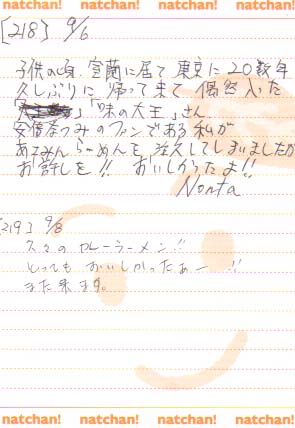 natchan! natchan! natchan! natchan!
[218] 9/6
子供の頃、室蘭に居て東京に20数年
久しぶりに帰って来て偶然入った
「味の大王」さん
安倍なつみのファンである私が
あみん らーめんを注文してしまいましたが
お許しを!! おいしかったよ!!
Nonta
[219] 9/8
久々のカレーラーメン!!
とってもおいしかったぁー!!
また来ます。
natchan! natchan! natchan! natchan!